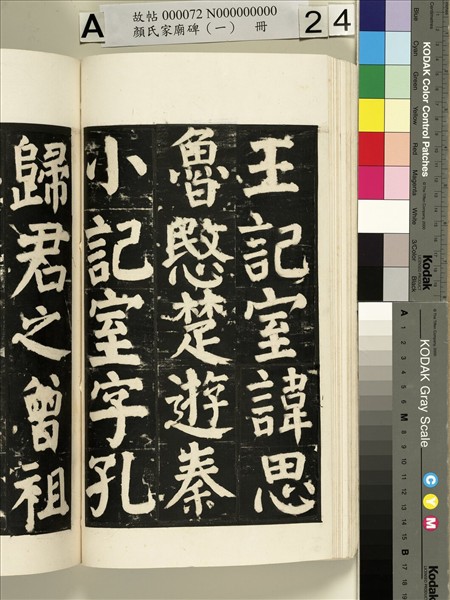 故帖 000072 N000000000
顏氏家廟碑（一） 冊
A
2 4
王記室諱思
魯愍楚遊秦
小記室字孔
歸君之曾祖
KODAK Color Control Patches
Blue
Cyan
Green
Yellow
Red
Magenta
White
3/Color
Black
Kodak
KODAK Gray Scale
C Y M
Kodak
A 1 2 3 4 5 6 M 8 9 10 11 12 13 14 15 B 17 18 19